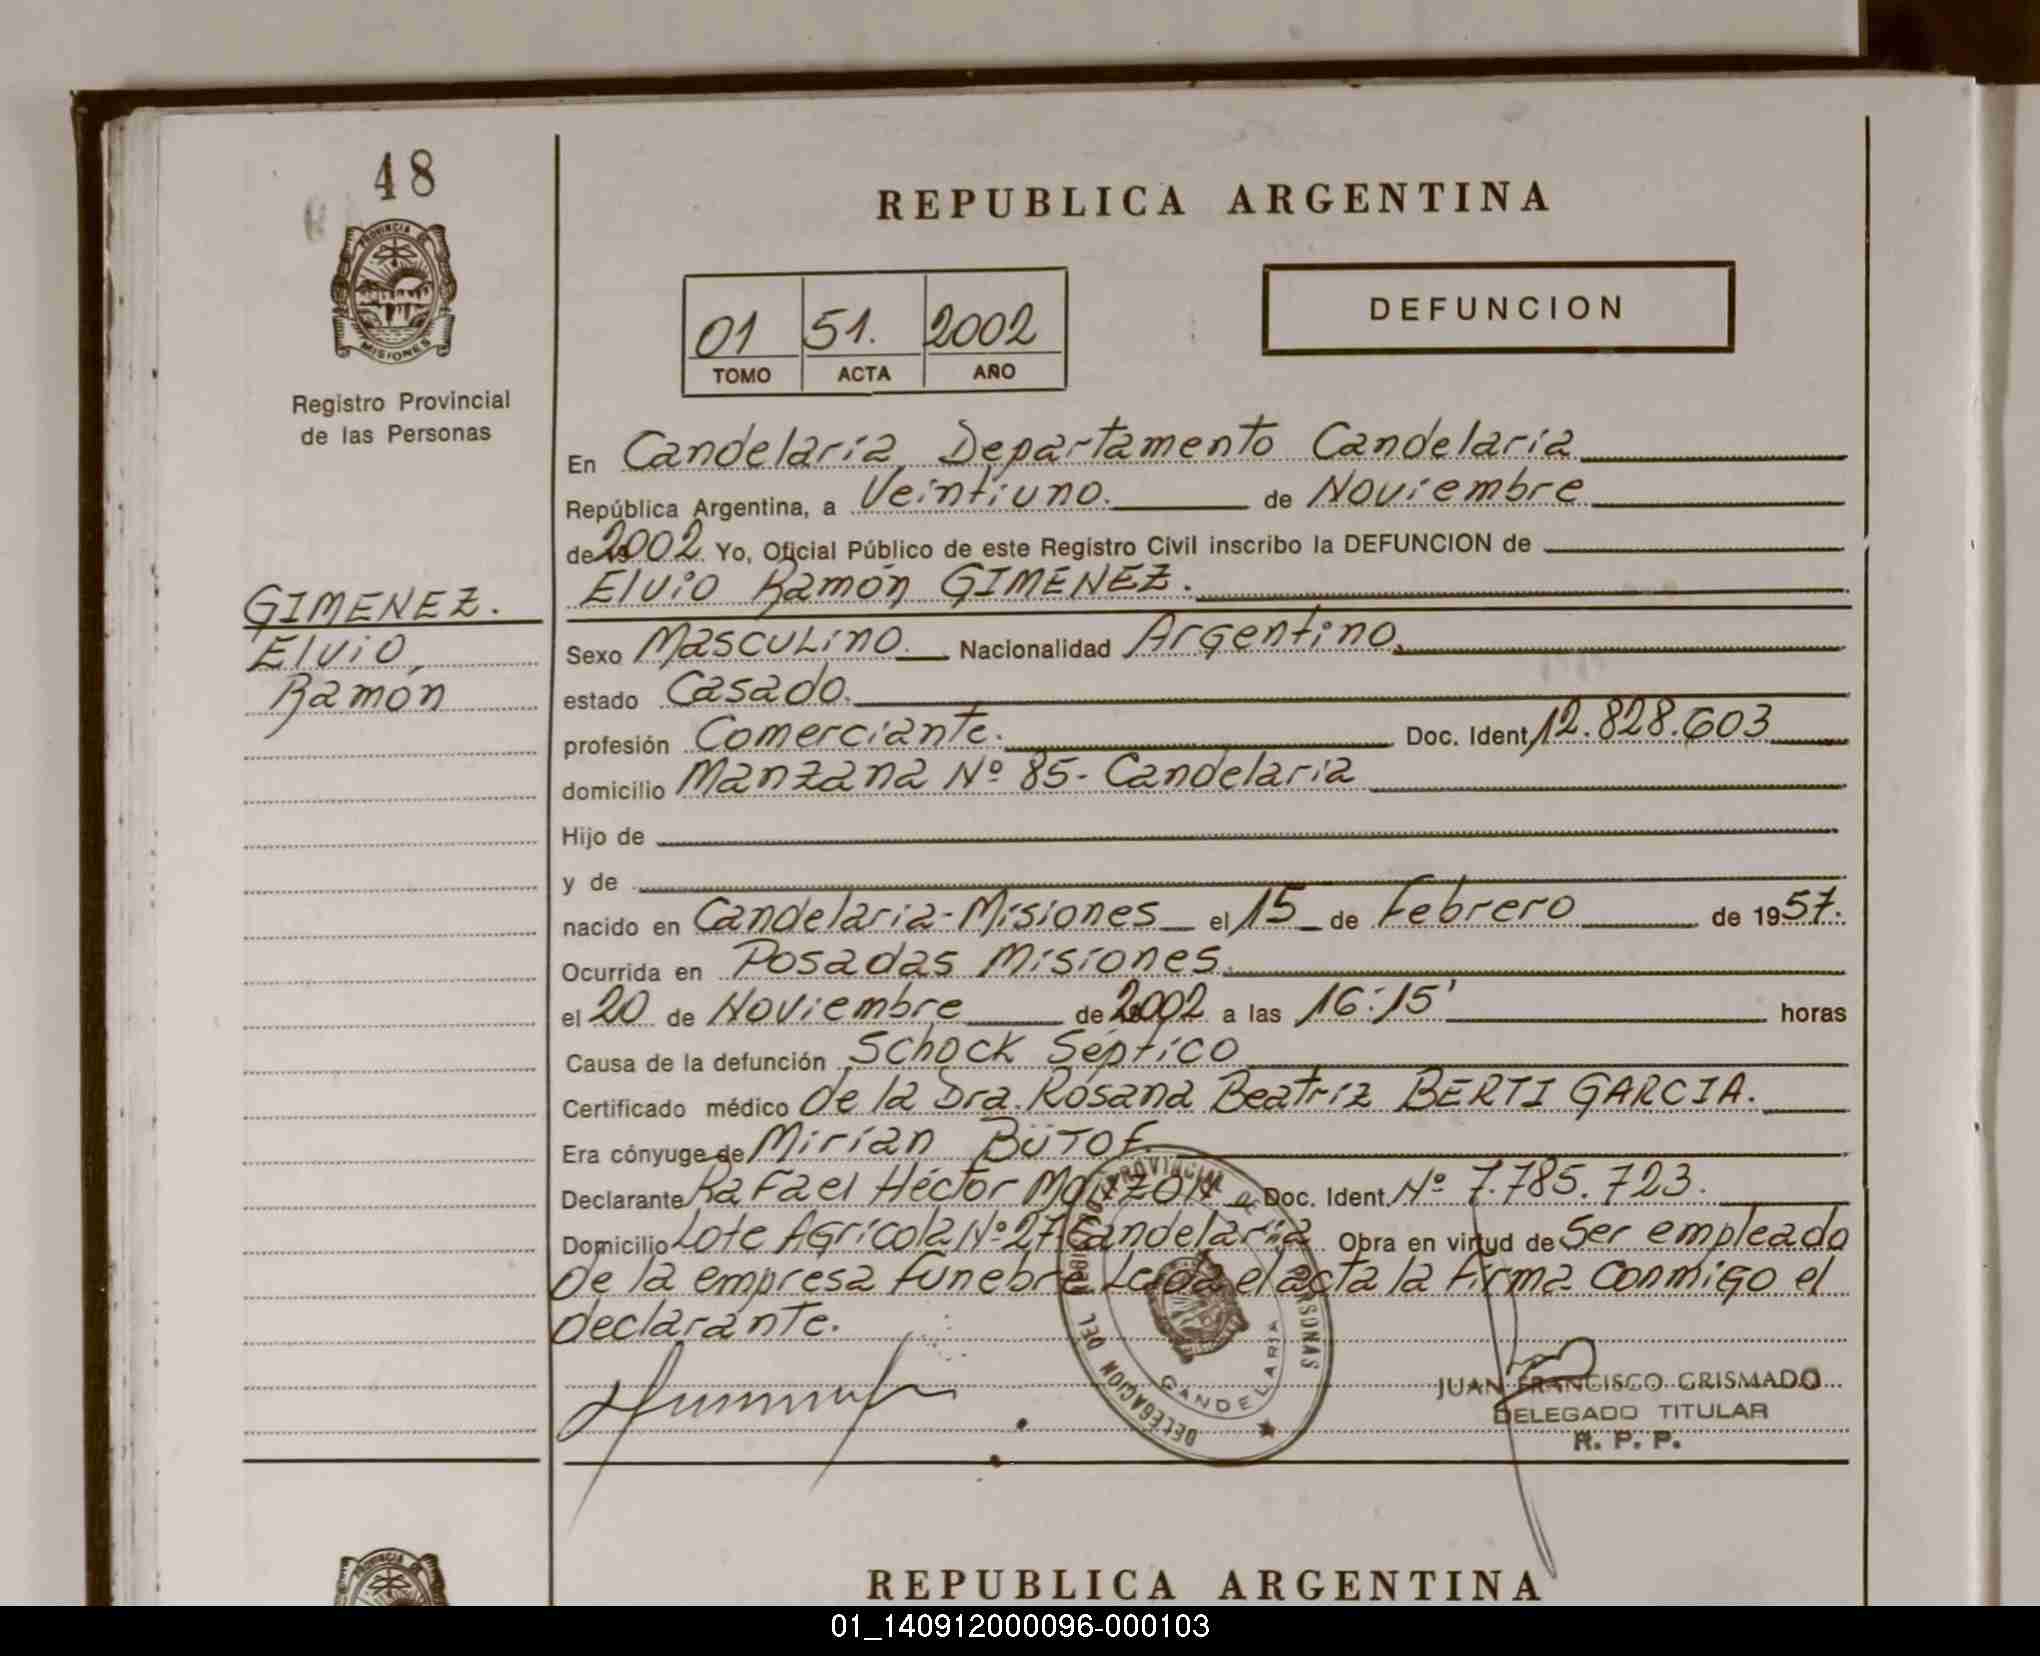 48
PROVINCIA DE
MISIONES
Registro Provincial
de las Personas
REPUBLICA ARGENTINA
01 51. 2002
TOMO ACTA AÑO
DEFUNCION
En Candelaria, Departamento Candelaria
República Argentina, a Veintiuno. de Noviembre
de 2002. Yo, Oficial Público de este Registro Civil inscribo la DEFUNCION de
Elvio Ramón GIMENEZ.
GIMENEZ.
Elvio,
Ramón
Sexo Masculino. Nacionalidad Argentino.
estado Casado.
profesión Comerciante. Doc. Ident. 12.828.603
domicilio Manzana Nº 85- Candelaria
Hijo de
y de
nacido en Candelaria-Misiones el 15 de Febrero de 1957.
Ocurrida en Posadas Misiones.
el 20 de Noviembre de 2002 a las 16:15' horas
Causa de la defunción Schock Séptico
Certificado médico de la Dra. Rosana Beatriz BERTI GARCIA.
Era cónyuge de Mirian BÜTOF.
Declarante Rafael Héctor MONZON Doc. Ident. Nº 7.785.723.
Domicilio Lote Agrícola Nº 27 Candelaria Obra en virtud de Ser empleado
de la empresa funebre. Leida el acta la firma conmigo el
declarante.
DELEGACION DEL REGISTRO PROVINCIAL DE PERSONAS
CANDELARIA
JUAN FRANCISCO GRISMADO
DELEGADO TITULAR
R. P. P.
PROVINCIA DE
REPUBLICA ARGENTINA
01_140912000096-000103